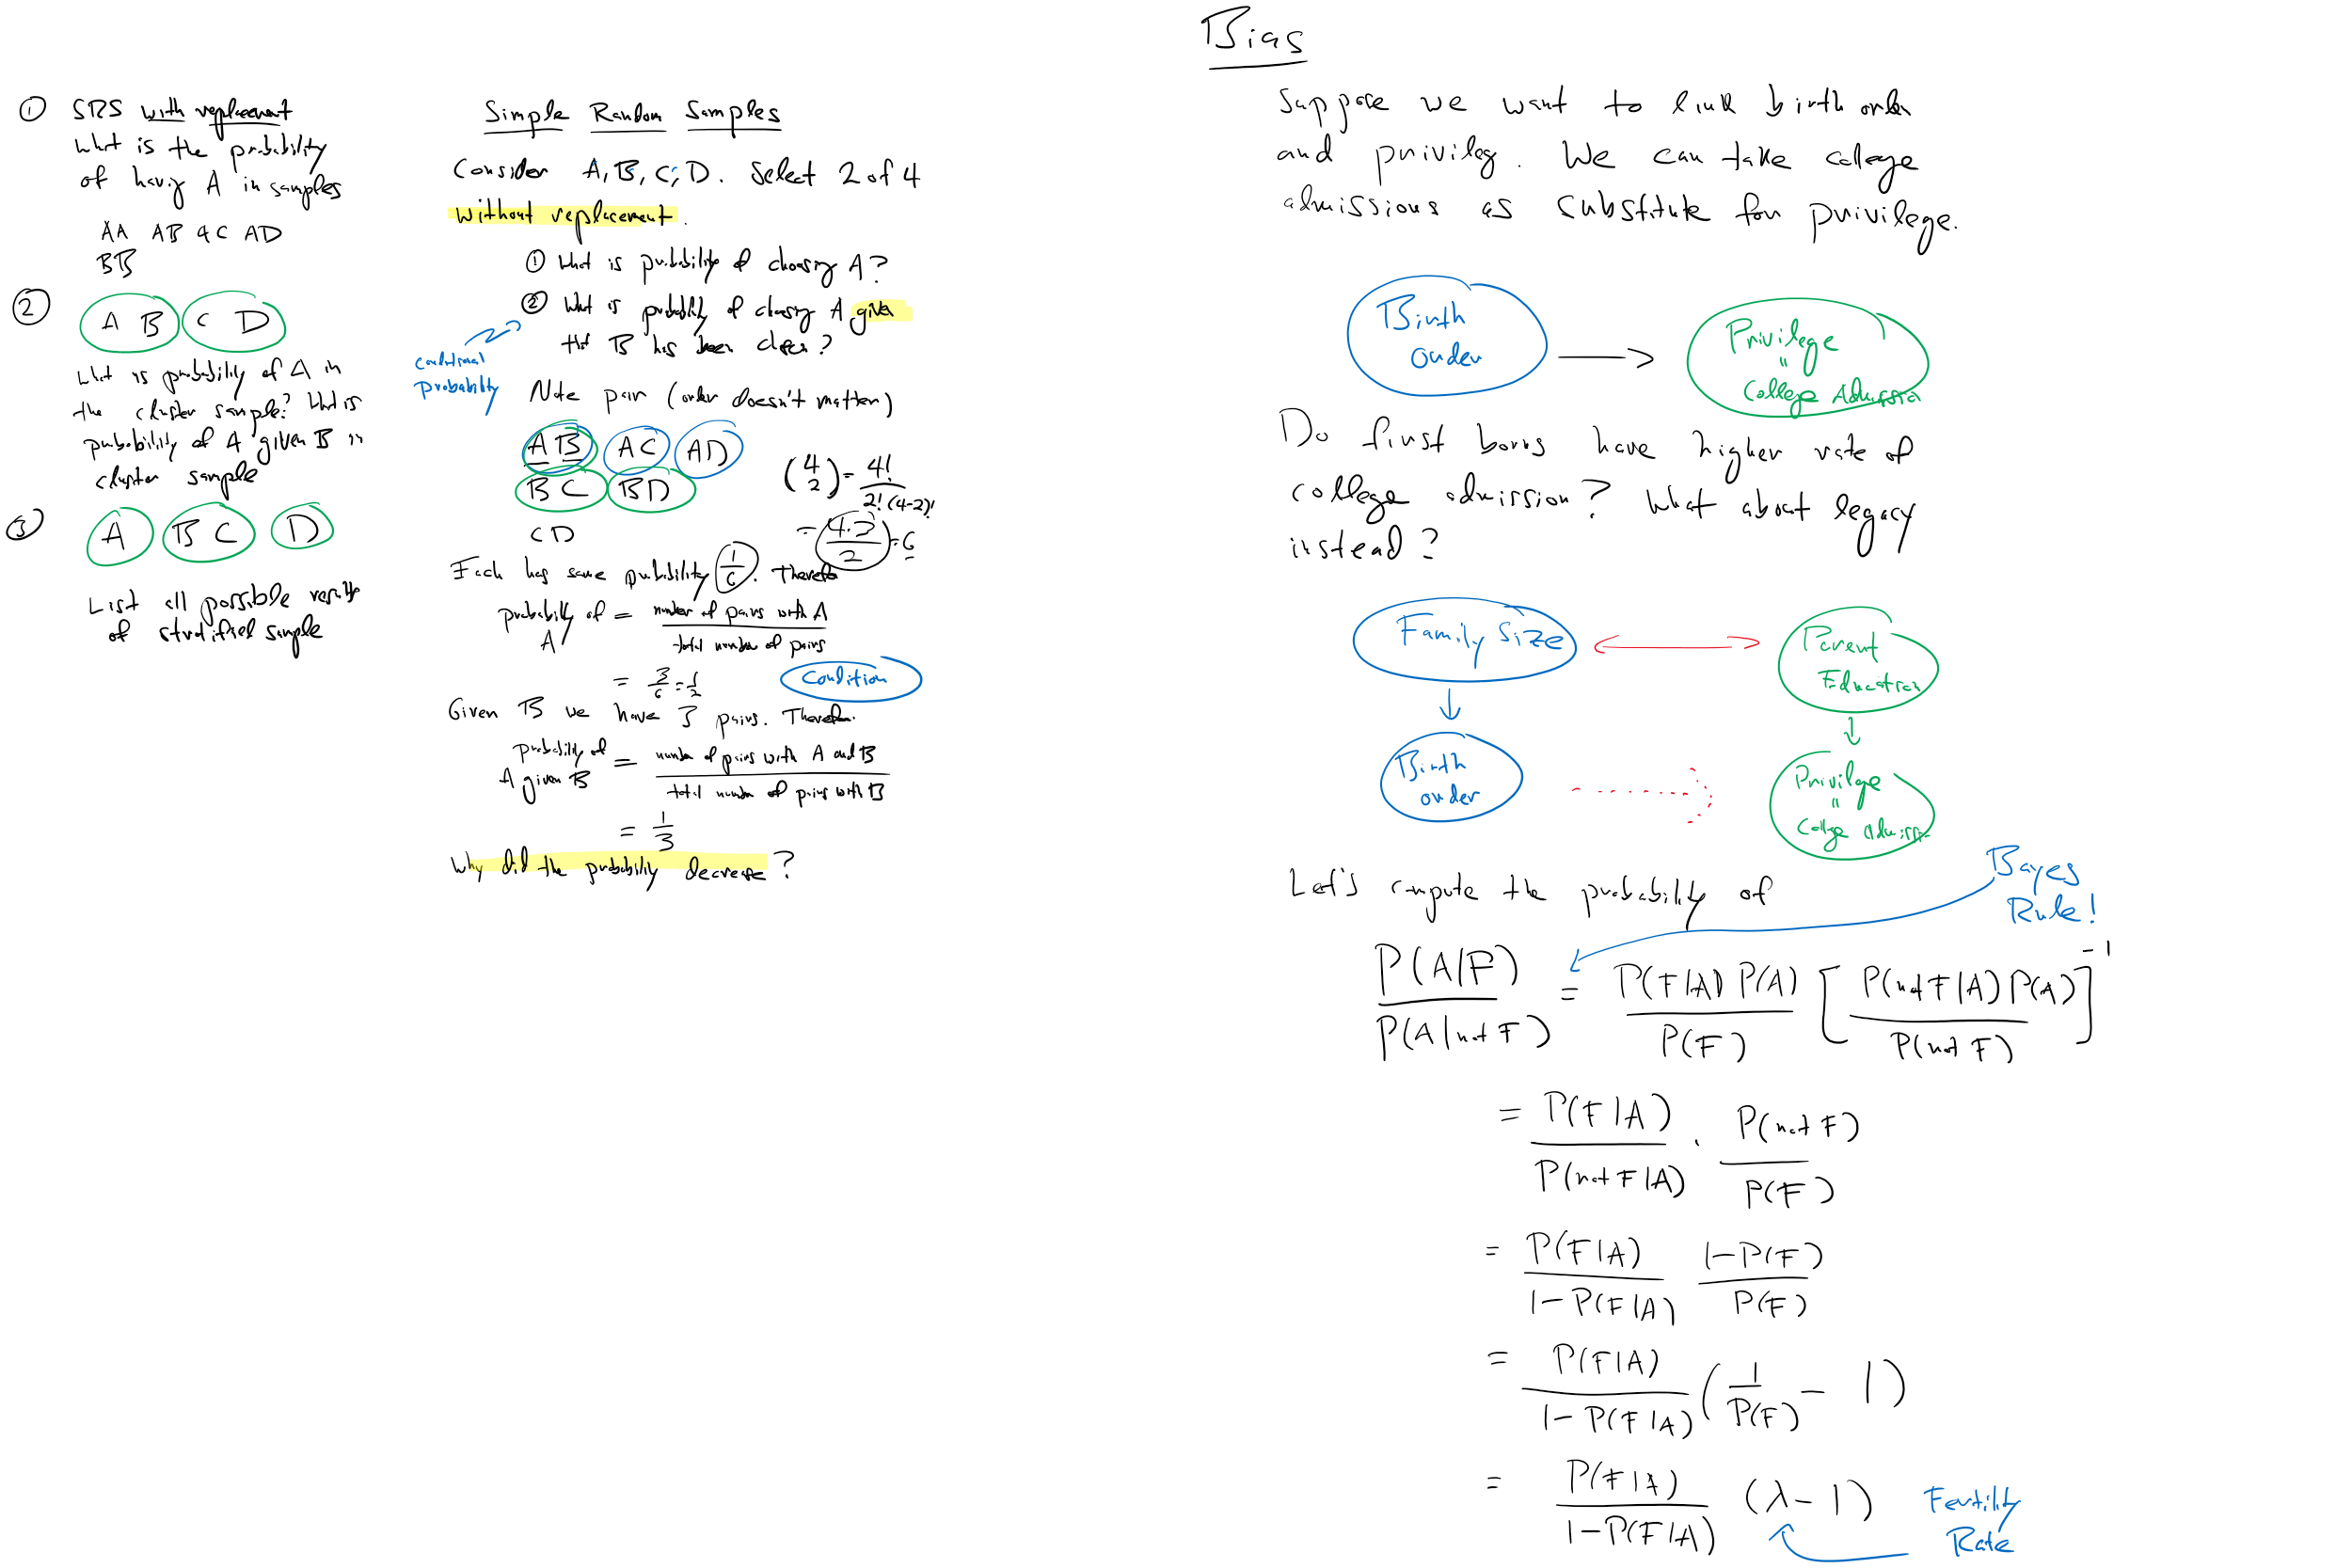 ① SRS with replacement
what is the probability
of having A in samples
AA AB AC AD
BB
② A B C D
What is probability of A in
the cluster sample? What is
probability of A given B in
cluster sample
③ A B C D
List all possible results
of stratified sample
Simple Random Samples
Consider A, B, C, D. Select 2 of 4
without replacement.
① What is probability of choosing A?
② What is probability of choosing A given
that B has been chosen?
conditional
probability
Note pair (order doesn't matter)
AB AC AD
BC BD
CD
(4 2) = 4! / 2!(4-2)!
= 4·3 / 2 = 6
Each has same probability 1/6. Therefore
probability of A = number of pairs with A / total number of pairs
= 3/6 = 1/2
Condition
Given B we have 3 pairs. Therefore.
probability of A given B = number of pairs with A and B / total number of pairs with B
= 1/3
Why did the probability decrease?
Bias
Suppose we want to link birth order
and privileg. We can take college
admissions as substitute for privilege.
Birth
Order
Privilege
"
College Admission
Do first borns have higher rate of
college admission? What about legacy
instead?
Family Size
Parent
Education
Birth
order
Privilege
"
College Admission
Let's compute the probability of
Bayes
Rule!
P(A|F) / P(A|not F) = P(F|A) P(A) / P(F) [ P(not F|A) P(A) / P(not F) ]^-1
= P(F|A) / P(not F|A) · P(not F) / P(F)
= P(F|A) / 1-P(F|A) 1-P(F) / P(F)
= P(F|A) / 1-P(F|A) (1/P(F) - 1)
= P(F|A) / 1-P(F|A) (λ-1)
Fertility
Rate